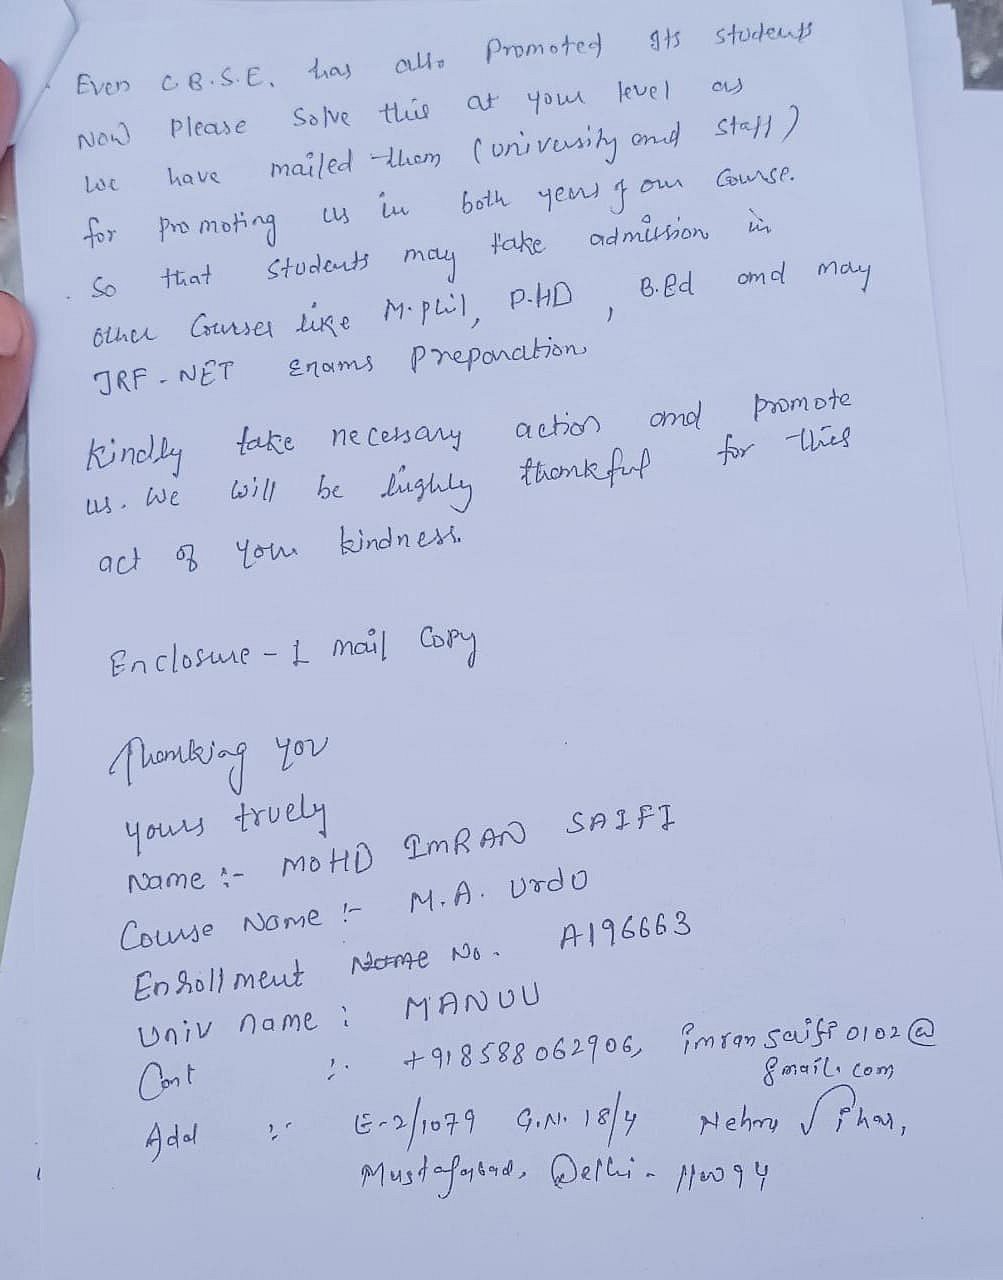 Even C.B.S.E. has also Promoted Its students
Now Please Solve this at your level as
we have mailed them (university and staff)
for promoting us in both years of our Course.
So that students may take admission in
other Courses like M.phil, P.HD, B.Ed and may
JRF-NET Exams Preparation.
Kindly take necessary action and promote
us. We will be highly thankful for this
act of your kindness.
Enclosure - 1 mail Copy
Thanking you
yours truely
Name :- MOHD IMRAN SAIFI
Course Name :- M.A. Urdo
Enrollment Name No. A196663
Univ name : MANUU
Cont :. +918588062906, imransaifi0102@
gmail.com
Add :- E-2/1079 G.N. 18/4 Nehru Vihar,
Mustafabad, Delhi - 110094